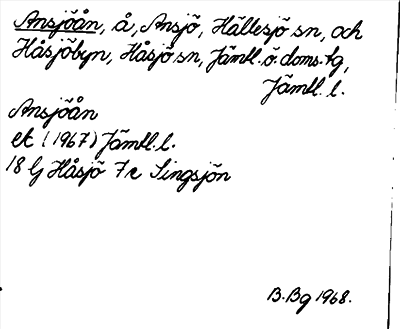 Ansjöån, å, Ansjö, Hällesjö sn, och
Håsjöbyn, Håsjö sn, Jämtl. ö. doms. tg,
Jämtl. l.
Ansjöån
ek (1967) Jämtl. l.
18 G Håsjö 7 e Singsjön
B. Bg 1968.